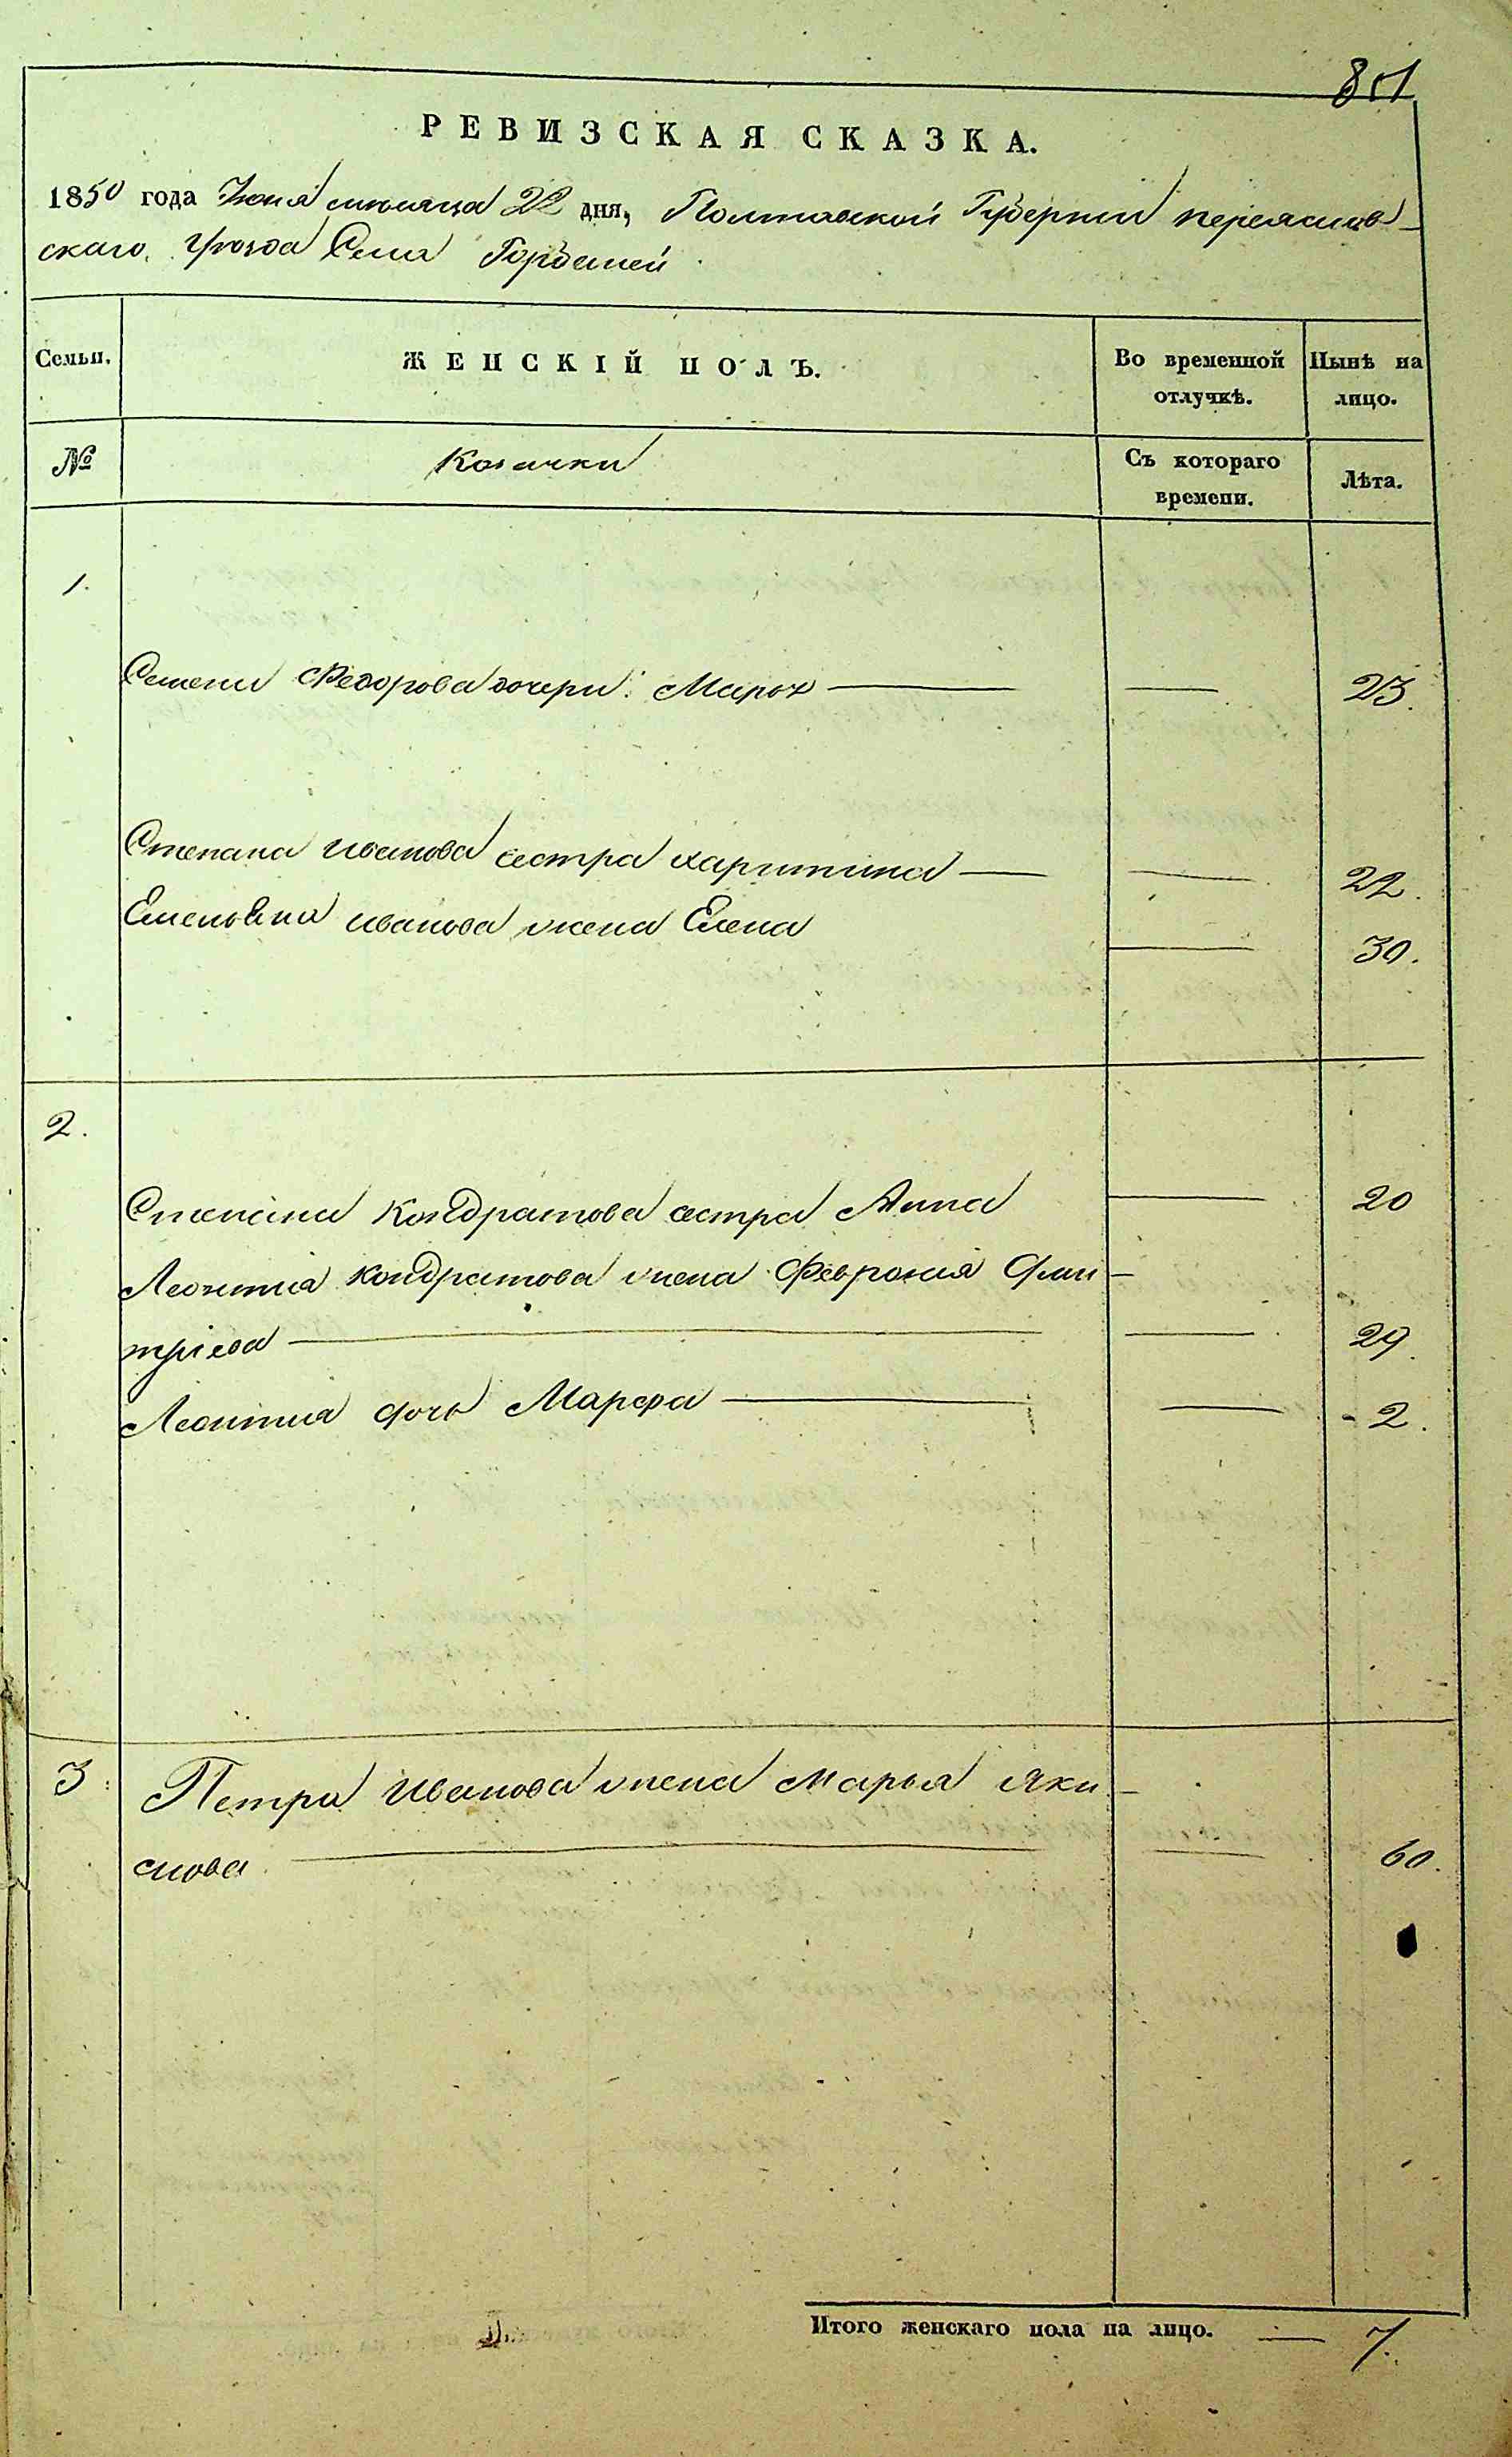 801
РЕВИЗСКАЯ СКАЗКА.
1850 года Июня мѣсяца 22 дня, Полтавской Губерніи переяслов-
скаго уѣзда Села Горбаней
Семьи. ЖЕНСКІЙ ПОЛЪ. Во временной отлучкѣ. Нынѣ на лицо.
№ Козачки Съ котораго времени. Лѣта.
1.
Семена Федорова дочери: — — 23.
Степана Иванова сестра харитина — — 22.
Емельяна иванова жена Елена — 30.
2.
Степана Кондратова сестра Анна — 20
Леонтія кондратова жена Февронія Дми-
тріева — — 29.
Леонтія дочь Марфа — — 2.
3 Петра Иванова жена марья Яки-
мова — — 60.
Итого женскаго пола на лицо. — 7.